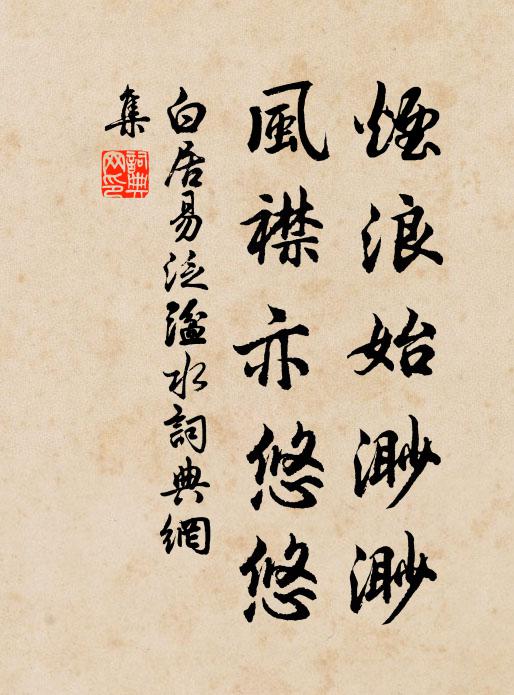 煙浪始渺渺
風襟亦悠悠
白居易泛湓水詞典網
集
詞典
网印